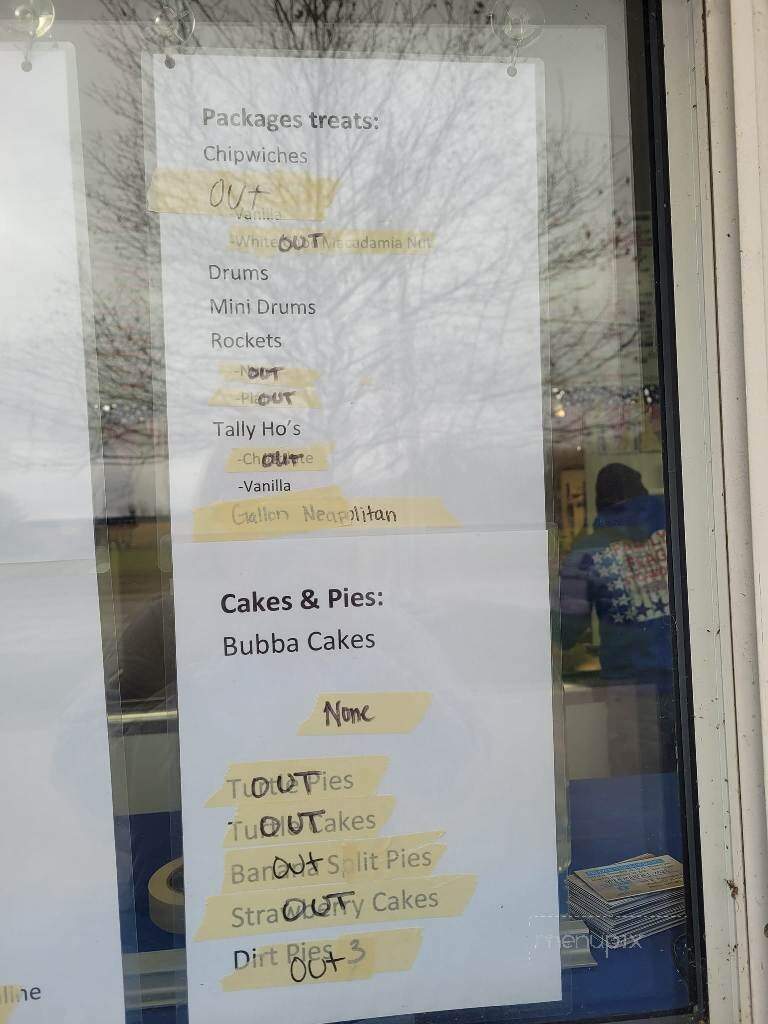 Packages treats:
Chipwiches
OUT
Vanilla
-White OUT Macadamia Nut
Drums
Mini Drums
Rockets
OUT
OUT
Tally Ho's
OUT
-Vanilla
Gallon Neapolitan
Cakes & Pies:
Bubba Cakes
None
Turtle Pies OUT
Turtle Cakes OUT
Banana Split Pies OUT
Strawberry Cakes OUT
Dirt Pies 3
OUT
line
menupix